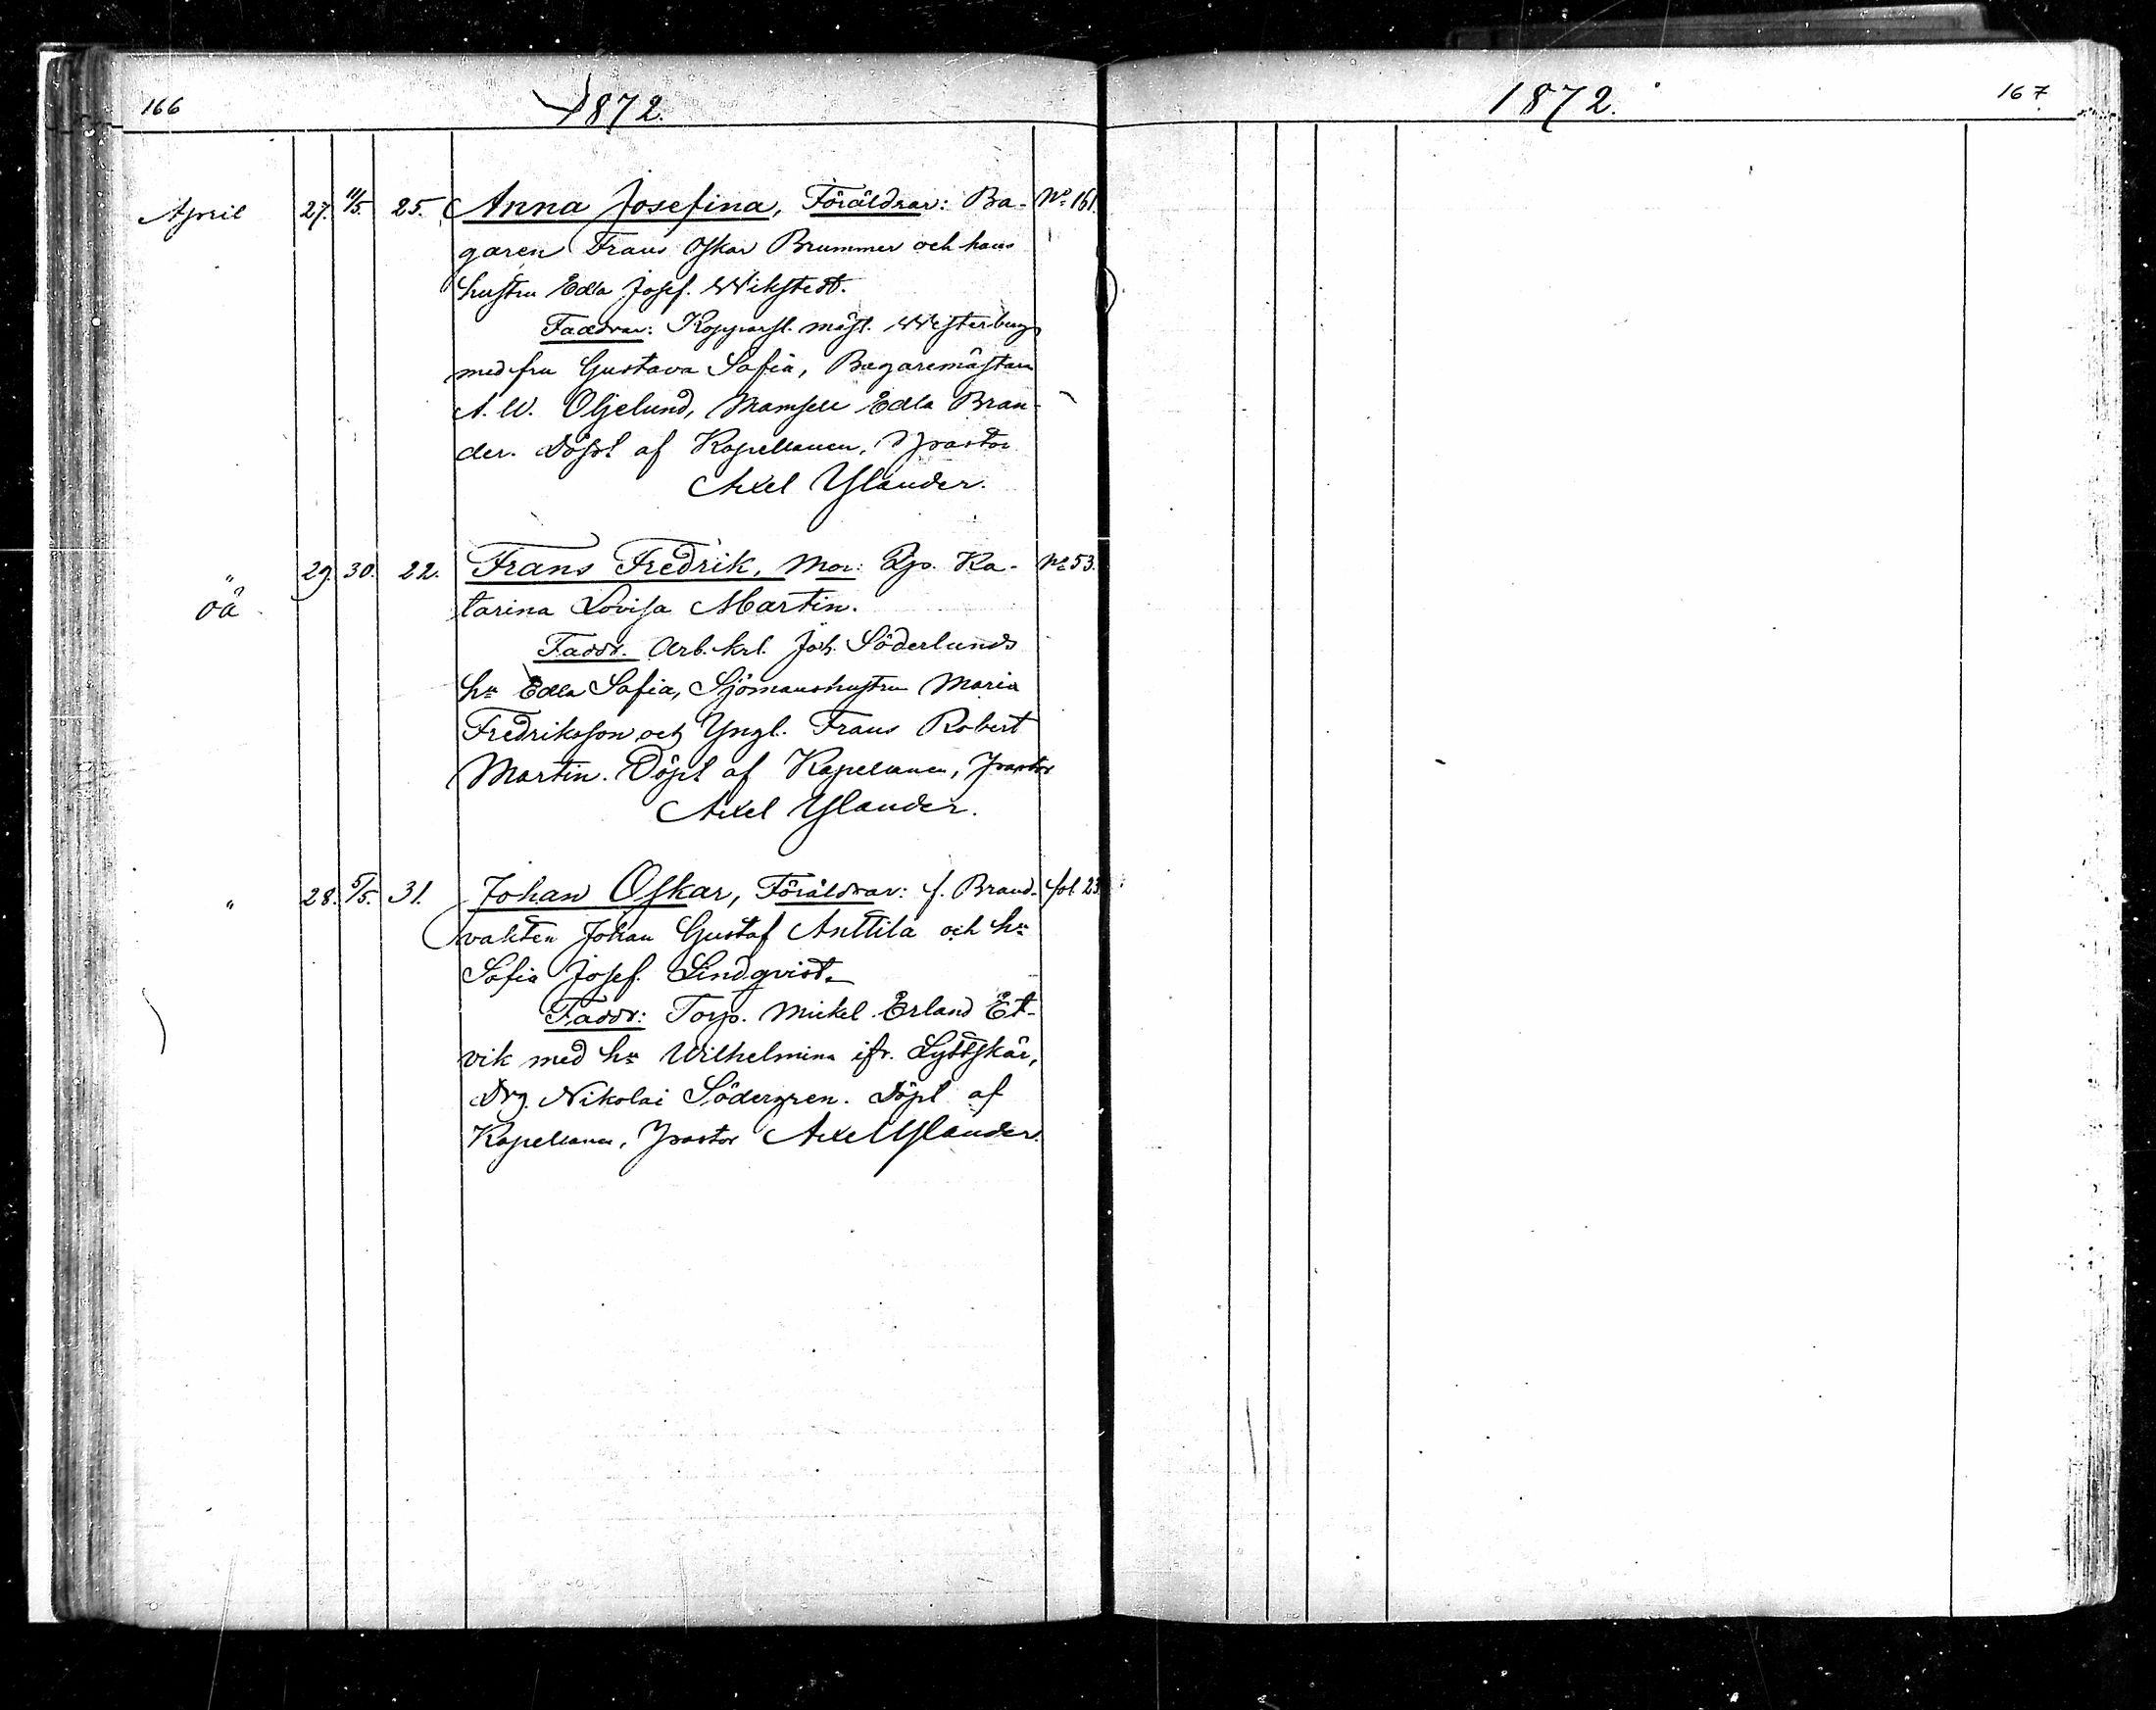 166
1872.
April 27. 11/5. 25. Anna Josefina, Föräldrar: Ba- No 161.
garen Frans Oskar Brummer och hans
hustru Edla Josef. Wikstedt.
Faddrar: Kopparsl. mäst. Westerberg
med fru Gustava Sofia, Bagaremästaren
A. W. Oljelund, Mamsell Edla Bran-
der. Döpt af Kapellanen, Vpastor
Axel Ylander.
" 29. 30. 22. Frans Fredrik, Mor: Pp. Ka- No 53.
oä tarina Lovisa Martin.
Faddr. Arb. krl. Joh. Söderlunds
hu Edla Sofia, Sjömanshustru Maria
Fredriksson och Yngl. Frans Robert
Martin. Döpt af Kapellanen, Vpastor
Axel Ylander.
" 28. 5/5. 31. Johan Oskar, Föräldrar: f. Brand- fol. 23
vakten Johan Gustaf Anttila och hu
Sofia Josef. Lindqvist.
Faddr: Torp. Mickel Erland Et-
vik med hu Wilhelmina ifr. Lyttskär,
Drg. Nikolai Södergren. Döpt af
Kapellanen, Vpastor Axel Ylander.
1872.
167.